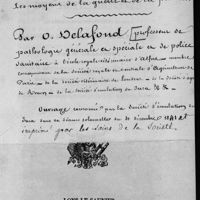 les moyens de la guérir et de la p
Par O. Delafond [professeur de
pathologie générale et spéciale et de police
sanitaire à l'école royale vétérinaire d'Alfort, membre
correspondant de la société royale et centrale d'agriculture de
Paris — de la société vétérinaire de Londres — de la Société d'agr
de Rouen — de la société d'émulation du Jura &c &c.
Ouvrage couronné par la Société d'émulation du
Jura dans sa séance solennelle du décembre 1841 et
imprimé par les soins de la Société.
LONS-LE-SAUNIER